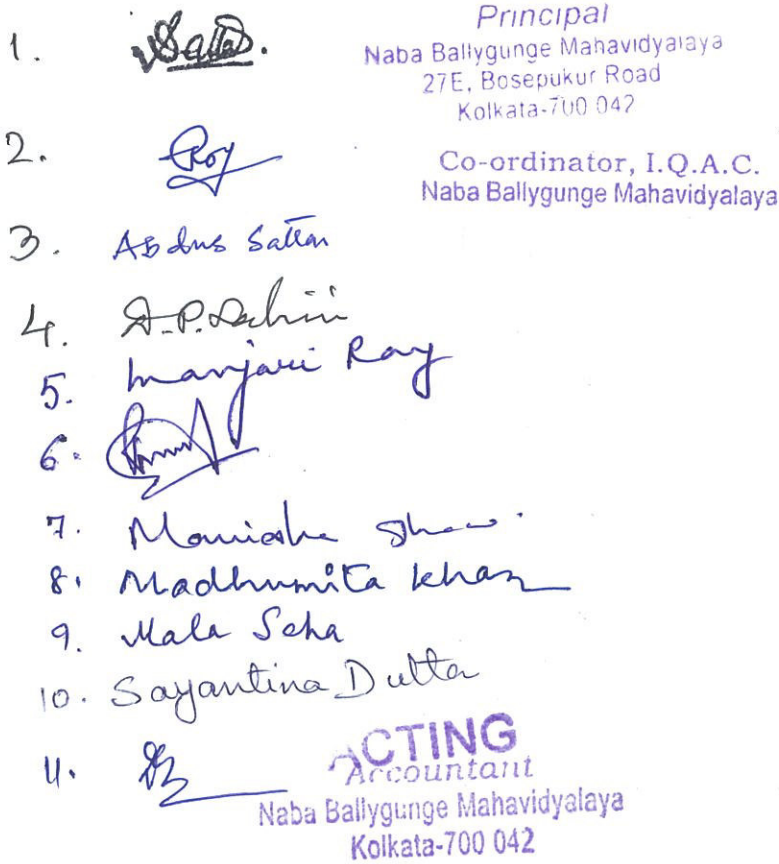 1.
Principal
Naba Ballygunge Mahavidyalaya
27E, Bosepukur Road
Kolkata-700 042
2. Roy
Co-ordinator, I.Q.A.C.
Naba Ballygunge Mahavidyalaya
3. Abdus Sattar
4. A.P.
5. Manjari Ray
6.
7. Manisha Shaw.
8. Madhumita Khan
9. Mala Saha
10. Sayantina Dutta
11.
ACTING
Accountant
Naba Ballygunge Mahavidyalaya
Kolkata-700 042